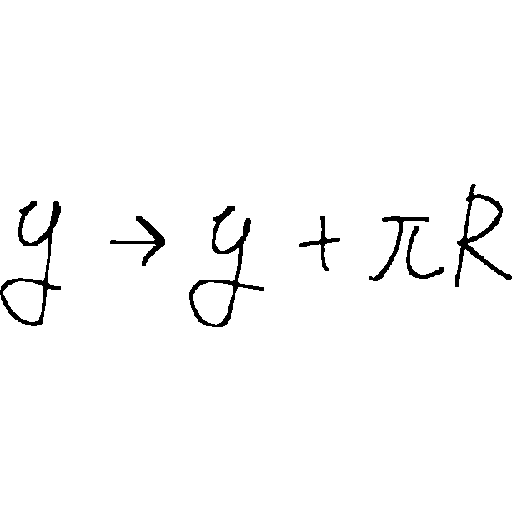 y → y + πR